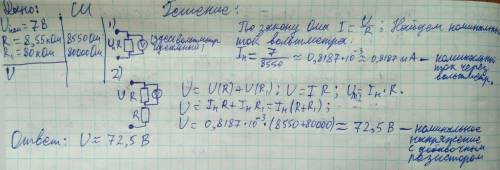 Дано:
Uном = 7В
R = 8,55кОм
R₁ = 80кОм
U
СИ
8550 Ом
80000 Ом
Решение:
1)
U R V
(здесь вольтметр идеальный)
По закону Ома I = U/R : Найдём номинальный
ток вольтметра.
Iн = 7/8550 ≈ 0,8187·10⁻³ ≈ 0,8187 мА – номинальный
ток через
вольтметр.
2)
U R V
R
U = U(R) + U(R₁); U = IR ; = Iн · R.
U = IнR + IнR₁ = Iн(R+R₁);
U = 0,8187·10⁻³·(8550+80000) ≈ 72,5 В – номинальное
напряжение
с добавочным
резистором
Ответ: U ≈ 72,5 В